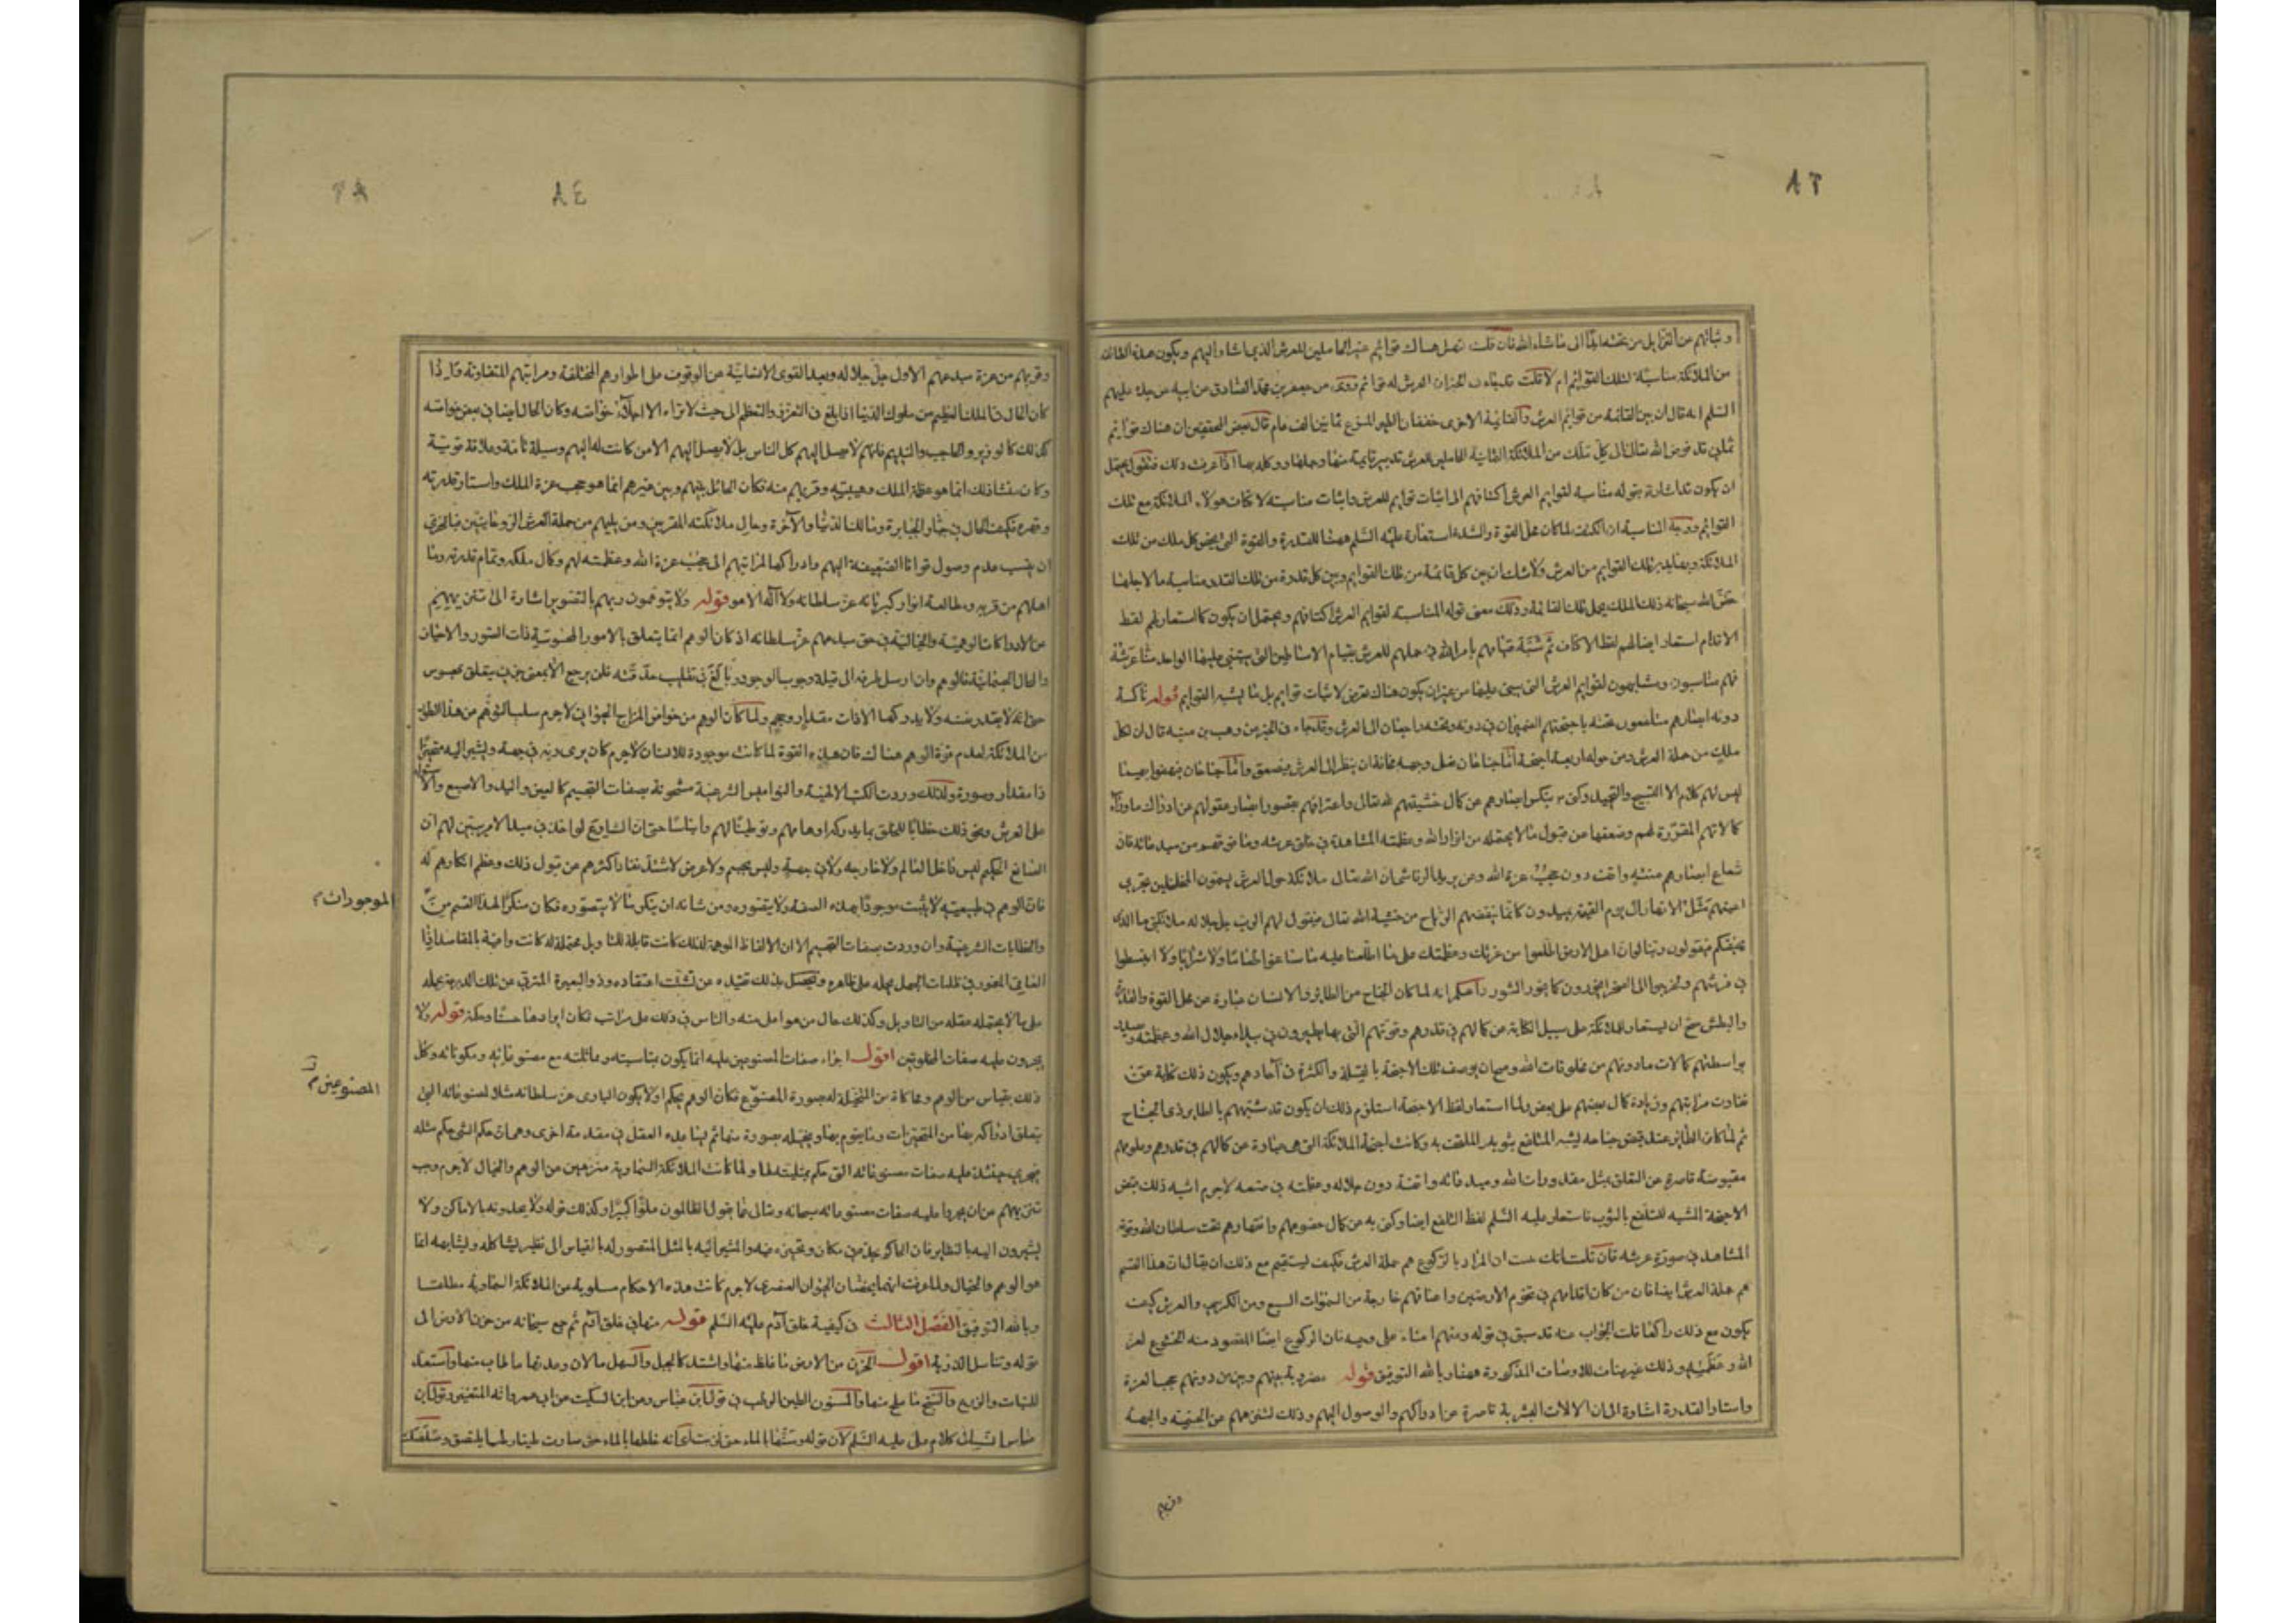 ٨٣
وقربهم من القرابل من تحته ايضا الى ما شاء الله فان قلت فهل هناك قوائم غير الحاملين للعرش الذي اشار اليهم ويكون هذه الطائفة
من الملائكة مناسبة لتلك القوائم ام لا قلت قد جاء في الخبر ان العرش له قوائم روى عن جعفر بن محمد الصادق عن ابيه عن جده عليهم
السلم انه قال ان بين القائمة من قوائم العرش والثانية الاخرى خفقان الطير المسرع ثمانين الف عام قال بعض المحققين ان هناك قوائم
ثمان قد فوض الله تعالى الى كل ملك من الملائكة الثمانية الحاملين للعرش تدبير قائمة منها وحملها ووكله بها اذا عرفت ذلك فنقول يحتمل
ان يكون قد اشار بقوله مناسبة لقوايم العرش اكتافهم الى اثبات قوايم للعرش واثبات مناسبة لاكتاف هؤلاء الملائكة مع تلك
القوائم ووجه المناسبة ان الكتف لما كان محل القوة والشدة استعاره عليه السلم ههنا للقدرة والقوة التي يخص كل ملك من تلك
الملائكة وبها يدبر تلك القوايم من العرش ولا شك ان بين كل قائمة من تلك القوايم وبين كل قدرة من تلك القدر مناسبة ما لاجلها
خص الله سبحانه ذلك الملك بحمل تلك القائمة وذلك معنى قوله المناسبة لقوايم العرش اكتافهم ويحتمل ان يكون كما استعار لهم لفظ
الاقدام استعار ايضا لهم لفظ الاكتاف ثم شبه قيامهم بامر الله في حملهم للعرش بقيام الاساطين التي يبتنى عليها الواحد منا عرشه
فهم مناسبون ومشابهون لقوايم العرش التي يبنى عليها من غير ان يكون هناك تعرض لاثبات قوايم بل ما يشبه القوايم قوله ناكسة
دونه ابصارهم متلفعون تحته باجنحتهم الضميران في دونه وتحته راجعان الى العرش وقد جاء في الخبر عن وهب بن منبه قال ان لكل
ملك من حملة العرش ومن حوله اربعة اجنحة اما جناحان فعلى وجهه مخافة ان ينظر الى العرش فيصعق واما جناحان فيهفوا بهما
ليس لهم كلام الا التسبيح والتحميد وكنى بنكس ابصارهم عن كمال خشيتهم لله تعالى واعترافهم بقصور ابصار عقولهم عن ادراك ما وراء
كمالاتهم المقررة لهم وضعفها عن قبول ما لا يحتمله من انوار الله وعظمته المشاهدة في خلق عرشه وما فوقهم من مبدعاته فان
شعاع ابصارهم منته واقف دون حجب عزة الله وعن يزيد الرقاشي ان لله تعالى ملائكة حول العرش يسمون المخلخلين تجرى
اعينهم مثل الانهار الى يوم القيمة يميدون كانما ينفضهم الرياح من خشية الله تعالى فيقول لهم الرب جل جلاله ملائكتي ما الذي
يخيفكم فيقولون ربنا لو ان اهل الارض اطلعوا من عزتك وعظمتك على ما اطلعنا عليه ما ساغوا طعاما ولا شرابا ولا انبسطوا
في فرشهم ولخرجوا الى الصحراء يخورون كما يخور الثور واعلم انه لما كان الجناح من الطائر والانسان عبارة عن محل القوة والقدرة
والبطش صح ان يستعار للملائكة على سبيل الكناية عن كمالهم في قدرهم وقوتهم التي بها يطيرون في بيداء جلال الله وعظمته
بواسطتهم كمالات ما دونهم من مخلوقات الله وصح ان يوصف تلك الاجنحة بالقلة والكثرة في آحادهم ويكون ذلك كناية عن
تفاوت مراتبهم وزيادة كمال بعضهم على بعض ولما استعار لفظ الاجنحة استلزم ذلك ان يكون قد شبههم بالطاير ذى الجناح
ثم لما كان الطاير عند قبض جناحه يشبه المتلفع بثوبه الملتحف به وكانت اجنحة الملائكة التي هي عبارة عن كمالهم في قدرهم وعلومهم
مقبوضة قاصرة عن التعلق بمثل مقدورات الله ومبدعاته واقفة دون جلاله وعظمته في صنعه لا جرم اشبه ذلك قبض
الاجنحة المشبه للتلفع بالثوب فاستعار عليه السلم لفظ التلفع ايضا وكنى به عن كمال خضوعهم وانقهارهم تحت سلطان الله وقوته
المشاهد في صورة عرشه فان قلت انك بينت ان المراد بالركوع هم حملة العرش فكيف يستقيم مع ذلك ان يقال ان هذا القسم
هم حملة العرش ايضا فان من كان اقدامهم في تخوم الارضين واعناقهم خارجة من السموات السبع ومن الكرسي والعرش كيف
يكون مع ذلك راكعا قلت الجواب عنه قد سبق في قوله ومنهم امناء على وحيه فان الركوع ايضا المقصود منه الخشوع لعز
الله وعظمته وذلك غير مناف للاوصاف المذكورة ههنا وبالله التوفيق قوله مضروبة بينهم وبين من دونهم حجب العزة
واستار القدرة اشارة الى ان الالات البشرية قاصرة عن ادراكهم والوصول اليهم وذلك لتنزههم عن الجسمية والجهة
وقربهم
٨٤
وقربهم من عزة مبدعهم الاول جل جلاله وبعد القوى الانسانية عن الوقوف على اطوارهم المختلفة ومراتبهم المتفاوتة واذا
كان الحال في الملك العظيم من ملوك الدنيا اذا بلغ في التعزز والتعظم الى حيث لا يراه الا اجلاء خواصه وكان الحال ايضا في بعض خواصه
كذلك كالوزير والحاجب والنديم فانهم لا يصل اليهم كل الناس بل لا يصل اليهم الا من كانت له اليهم وسيلة تامة وعلاقة قوية
وكان منشأ ذلك انما هو عظمة الملك وهيبته وقربهم منه فكان الحائل بينهم وبين غيرهم انما هو حجب عزة الملك واستار قدرته
وقهره فكيف الحال في جبار الجبابرة ومالك الدنيا والآخرة وحال ملائكته المقربين ومن يليهم من حملة العرش الروحانيين فبالحرى
ان ينسب عدم وصول قوانا الضعيفة اليهم وادراكها لمراتبهم الى حجب عزة الله وعظمته لهم وكمال ملكه وتمام قدرته وما
اهلهم من قربه ومطالعة انوار كبريائه عز سلطانه ولا اله الا هو قوله ولا يتوهمون ربهم بالتصوير اشارة الى تنزيههم
عن الادراكات الوهمية والخيالية في حق مبدعهم عز سلطانه اذ كان الوهم انما يتعلق بالامور المحسوسة ذات الصور والاحيان
والمحال الجسمانية فالوهم وان ارسل طرفه الى قبلة وجوب الوجود وبالغ في تقليب حدقته فلن يرجع الا بمعنى جزئى يتعلق بمحسوس
حتى انه لا يقدر نفسه ولا يدركها الا ذات مقدار وحجم ولما كان الوهم من خواص المزاج الحيوانى لا جرم سلب التوهم عن هذا الطور
من الملائكة لعدم قوة الوهم هناك فان هذه القوة لما كانت موجودة للانسان لا جرم كان يرى ربه في جهة ويشير اليه متحيزا
ذا مقدار وصورة ولذلك وردت الكتب الالهية والنواميس الشرعية مشحونة بصفات التجسيم كالعين واليد والاصبع والاستواء
على العرش ونحو ذلك خطابا للخلق بما يدركه اوهامهم وتوطينا لهم وايناسا حتى ان الشارع لو اخذ في مبدء الامر يبين لهم ان
الصانع الحكيم ليس داخل العالم ولا خارجه ولا في جهة وليس بجسم ولا عرض لاشتد نفار اكثرهم عن قبول ذلك وعظم انكارهم له
فان الوهم في طبيعته لا يثبت موجودا بهذه الصفة ولا يتصوره ومن شانه ان ينكر ما لا يتصوره فكان منكرا لهذا القسم من
الموجودات
والخطابات الشرعية وان وردت بصفات التجسيم الا ان الالفاظ الموهمة لذلك كانت قابلة للتاويل محتملة له كانت وافية بالمقاصد اذ
العامى المغمور في ظلمات الجهل يحمله على ظاهره ويحصل بذلك تقييده عن تشتت اعتقاده وذو البصيرة المترقى عن تلك الدرجة يحمله
على ما لا يحتمله عقله من التاويل وكذلك حال من هو اعلى منه والناس في ذلك على مراتب فكان ايرادها حسنا وحكمة قوله ولا
يجرون عليه صفات المخلوقين اقول اجراء صفات المصنوعين عليه انما يكون بمناسبته ومماثلته مع مصنوعاته ومكوناته وكل
المصنوعين
ذلك بقياس من الوهم ومحاكاة من المتخيلة له بصورة المصنوع فكان الوهم يحكم اولا بكون البارى عز سلطانه مثلا لمصنوعاته التي
يتعلق ادراكه بها من المتحيزات وما يقوم بها ويخيله بصورة منها ثم يساعده العقل في مقدمة اخرى وهي ان حكم الشئ حكم مثله
فيجرى حينئذ عليه صفات مصنوعاته التي حكم بمثليته لها ولما كانت الملائكة السماوية منزهين عن الوهم والخيال لا جرم وجب
تنزيههم عن ان يجروا عليه صفات مصنوعاته سبحانه وتعالى عما يقول الظالمون علوا كبيرا وكذلك قوله ولا يحدونه بالاماكن ولا
يشيرون اليه بالنظاير فان الحاكم بحده في مكان وتحيزه فيه والمشير اليه بالمثل المتصور له بالقياس الى نظير يشاكله ويشابهه انما
هو الوهم والخيال ولما عرفت انهما يخصان الحيوان العنصرى لا جرم كانت هذه الاحكام مسلوبة عن الملائكة السماوية مطلقا
وبالله التوفيق الفصل الثالث في كيفية خلق آدم عليه السلم قوله منها في خلق آدم ثم جمع سبحانه من حزن الارض الى
قوله وتناسل الذرية اقول الحزن من الارض ما غلظ منها واشتد كالجبل والسهل ما لان وعذبها ما طاب منها واستعد
للنبات والزرع والسبخ ما ملح منها والمسنون الطين الرطب في قول ابن عباس وعن ابن السكيت عن ابى عمرو انه المتغير وقول ابن
عباس انسب الى كلام على عليه السلم لان قوله وسنها بالماء حتى لزبت اى انه خلطها بالماء حتى صارت طينا رطبا يلتصق